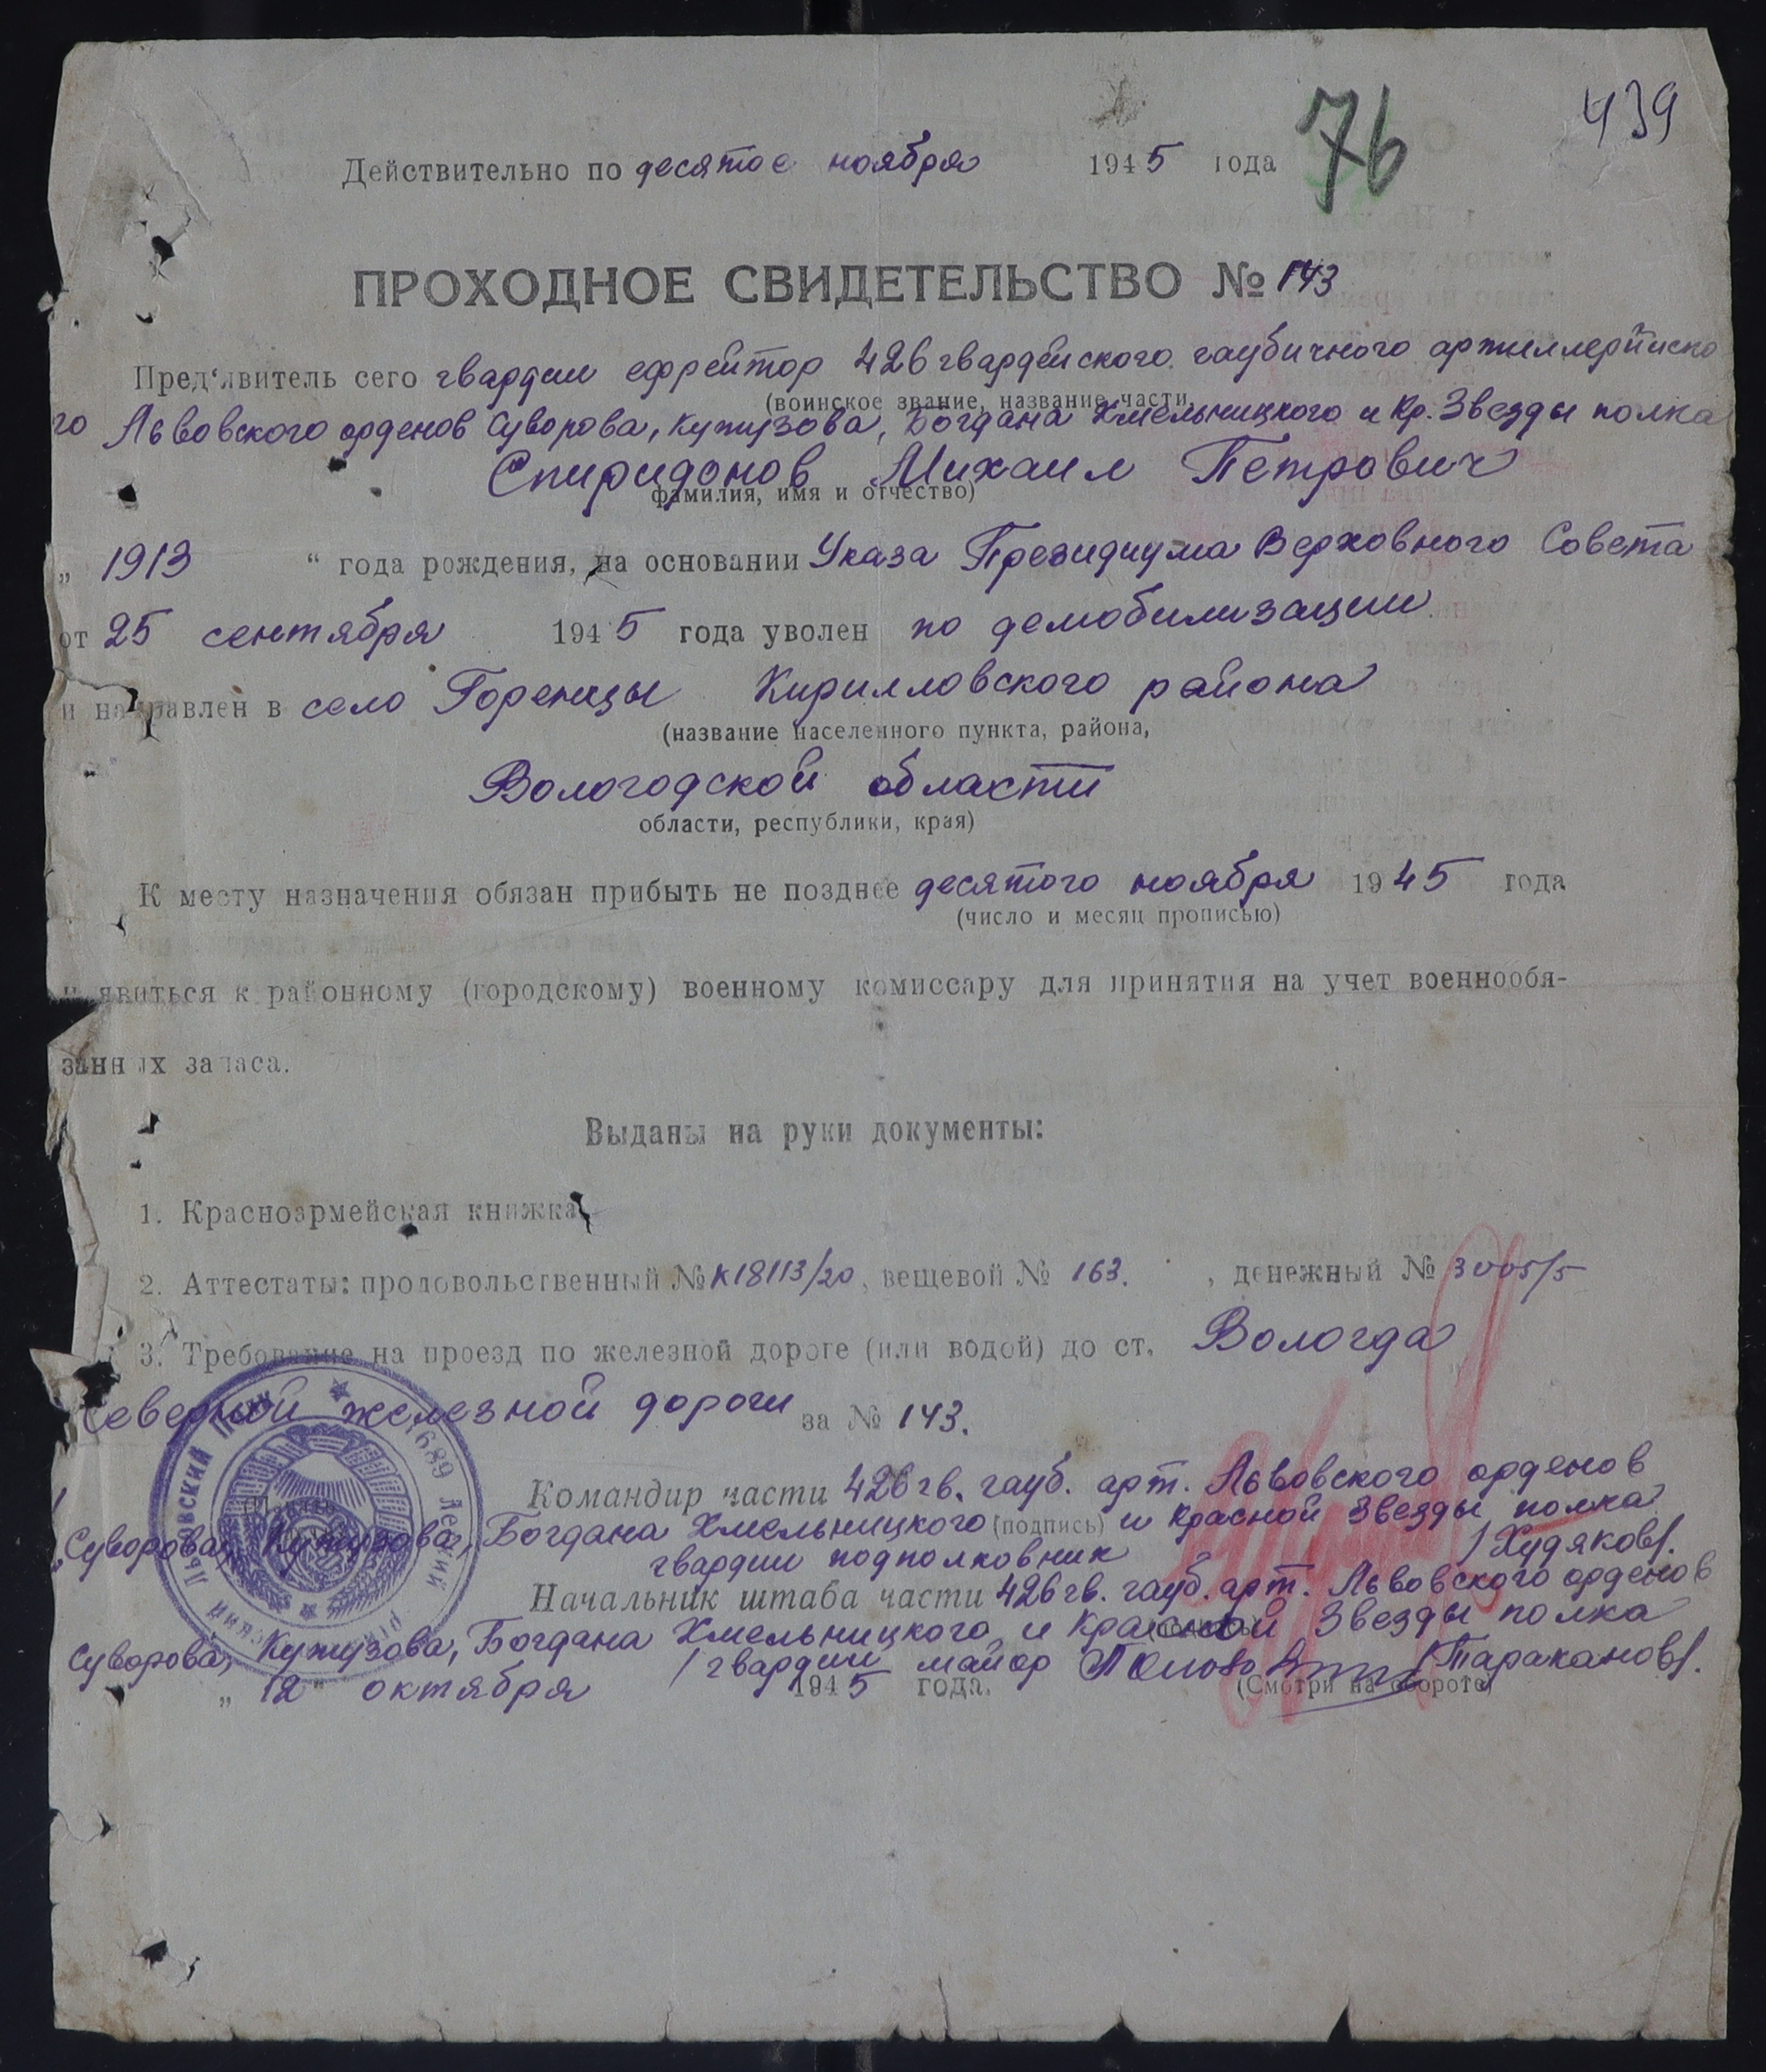 439
76
Действительно по десятое ноября 1945 года
ПРОХОДНОЕ СВИДЕТЕЛЬСТВО № 143
Пред'явитель сего гвардии ефрейтор 426 гвардейского гаубичного артиллерийско
(воинское звание, название части,
го Львовского орденов Суворова, Кутузова, Богдана Хмельницкого и Кр. Звезды полка
Спиридонов Михаил Петрович
фамилия, имя и отчество)
„ 1913 “ года рождения, на основании Указа Президиума Верховного Совета
от 25 сентября 1945 года уволен по демобилизации
и направлен в село Горенцы Кирилловского района
(название населенного пункта, района,
Вологодской области
области, республики, края)
К месту назначения обязан прибыть не позднее десятого ноября 1945 года
(число и месяц прописью)
и явиться к районному (городскому) военному комиссару для принятия на учет военнообя-
занных запаса.
Выданы на руки документы:
1. Красноармейская книжка
2. Аттестаты: продовольственный № К18113/20, вещевой № 163. , денежный № 3005/5
3. Требование на проезд по железной дороге (или водой) до ст. Вологда
Северной железной дороги за № 143.
Командир части 426 гв. гауб. арт. Львовского орденов
Суворова, Кутузова, Богдана Хмельницкого (подпись) и Красной Звезды полка
гвардии подполковник /Худяков/.
Начальник штаба части 426 гв. гауб. арт. Львовского орденов
Суворова, Кутузова, Богдана Хмельницкого и Красной Звезды полка
/гвардии майор /Тараканов/.
„ 12 “ октября 1945 года. (Смотри на обороте)